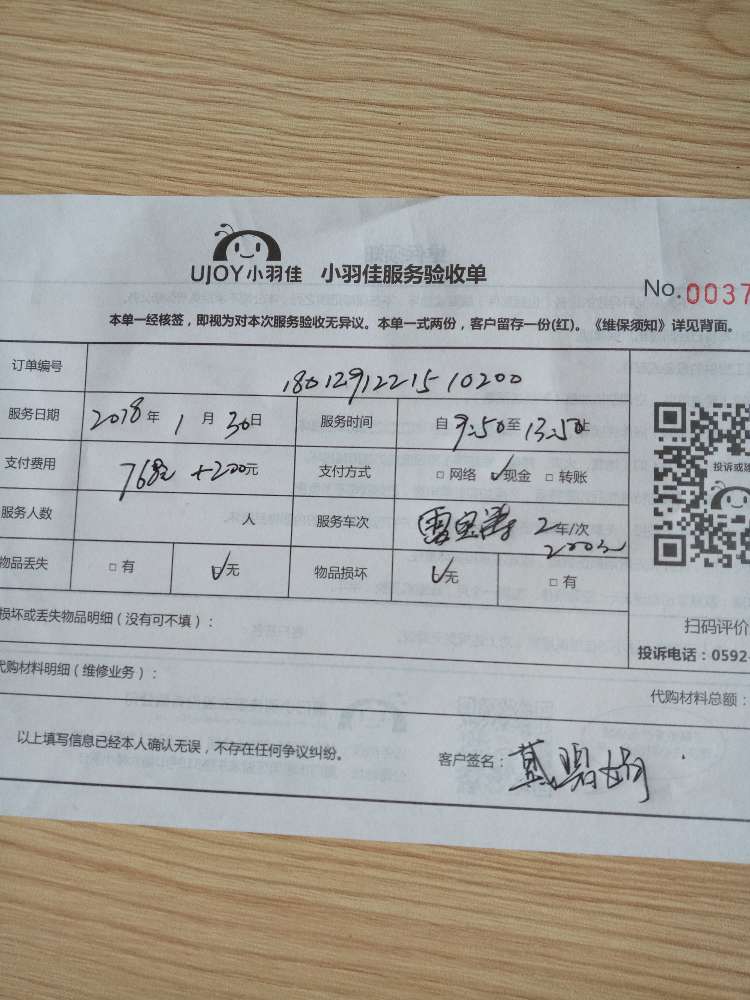 UJOY小羽佳 小羽佳服务验收单
No.0037
本单一经核签，即视为对本次服务验收无异议。本单一式两份，客户留存一份(红)。《维保须知》详见背面。
订单编号 18012912215 10200
服务日期 2018年 1 月 30日 服务时间 自 9:50至13:50止
支付费用 768元 +200元 支付方式 □ 网络 ☑现金 □ 转账
投诉或建
服务人数 人 服务车次 2车/次
物品丢失 □ 有 ☑无 物品损坏 ☑无 □ 有
损坏或丢失物品明细（没有可不填）：
扫码评价
投诉电话：0592-
代购材料明细（维修业务）：
代购材料总额：
以上填写信息已经本人确认无误，不存在任何争议纠纷。
客户签名：